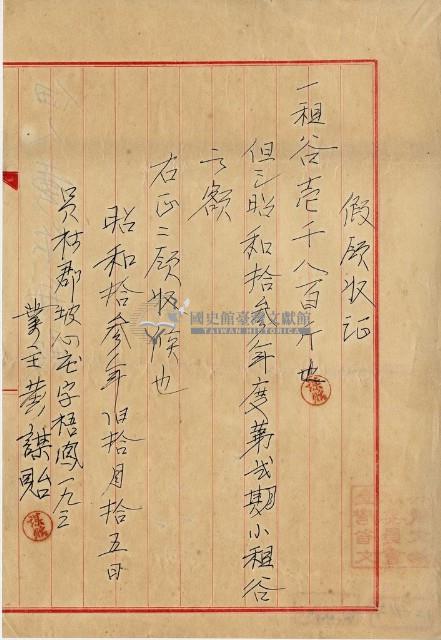 假領收証
一租谷壱千八百斤也
但シ昭和拾参年度第弍期小租谷
之額
右正ニ領收候也
昭和拾参年旧拾月拾五日
員林郡坡心庄字梧鳳一九三
業主黄謀貽
國史館臺灣文獻館
TAIWAN HISTORICA
謀貽
謀貽